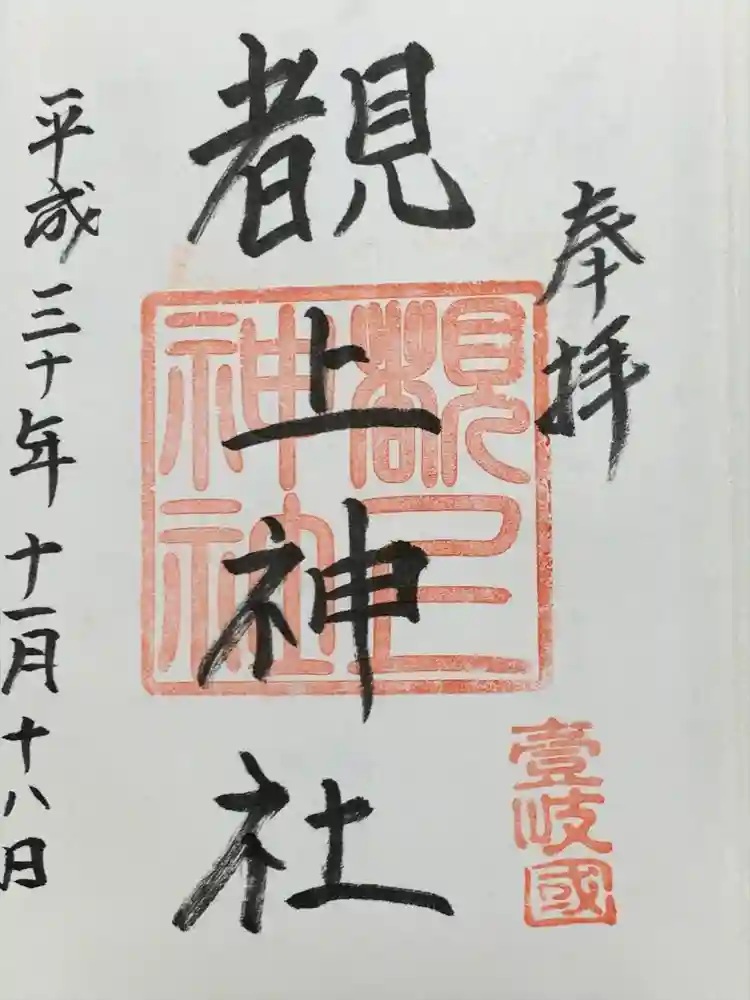 奉拝
覩上神社
覩上神社
壹岐國
平成三十年十一月十八日